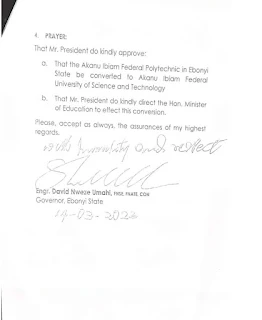 4. PRAYER:
That Mr. President do kindly approve:
a. That the Akanu Ibiam Federal Polytechnic in Ebonyi
State be converted to Akanu Ibiam Federal
University of Science and Technology
b. That Mr. President do kindly direct the Hon. Minister
of Education to effect this conversion.
Please, accept as always, the assurances of my highest
regards.
with humility and respect
Engr. David Nweze Umahi, FNSE, FNATE, CON
Governor, Ebonyi State
14-03-2022